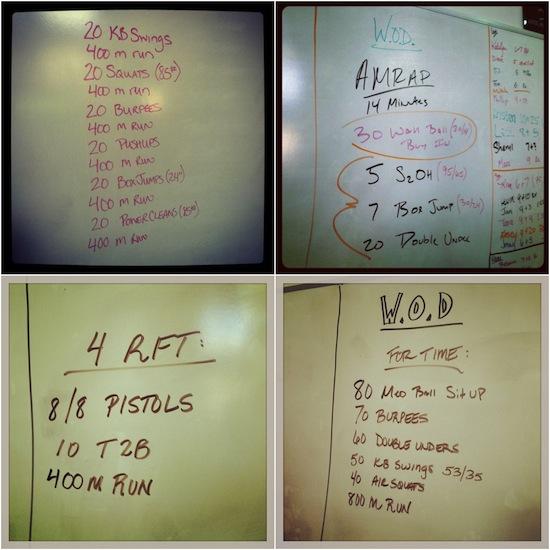 20 KB Swings
400 m run
20 Squats (85#)
400 m run
20 Burpees
400 m Run
20 Pushups
400 m Run
20 Box Jumps (24")
400 m Run
20 Power Cleans (85#)
400 m Run
W.O.D.
AMRAP
14 Minutes
30 Wall Ball (20/14)
Buy In
5 S2OH (95/65)
7 Box Jump (30/24)
20 Double Under
Sherrie 7+3
4 RFT:
8/8 PISTOLS
10 T2B
400 M RUN
W.O.D
FOR TIME:
80 Med Ball Sit UP
70 BURPEES
60 DOUBLE UNDERS
50 KB SWINGS 53/35
40 AIR SQUATS
800 M RUN